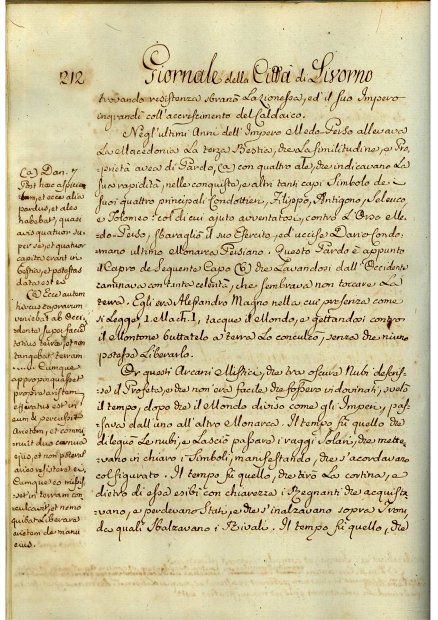 212
Giornale della Città di Livorno
trovando resistenza sbranò La Lionessa, ed il suo Impero
ingrandì coll'accrescimento del Caldaico.
Negl'ultimi Anni dell'Impero Medo Perso allevava
La Macedonia La terza Bestia, che La similitudine, e Pro-
prietà avea di Pardo, (a) con quattro ale, che indicavano La
sua rapidità, nelle conquiste, e altri tanti capi Simbolo de
suoi quattro principali Condottieri, Antigono, Seleuco
e Tolomeo: col di cui ajuto avventatosi, contro L'Orso Me-
do-Perso, sbaragliò il suo Esercito, ed uccise Dario Condo-
mano ultimo Monarca Persiano. Questo Pardo è appunto
il Capro del Seguente Capo (b) che Levandosi dall'Occidente
caminava con tanta celerità, che sembrava non toccare La
terra. Egli era Alesandro Magno nella cui presenza come
si Legge 1. Mach. 1. tacque il Mondo, e gettandosi contro
il Montone buttatelo a terra Lo conculcò, senza che niuno
potesse Liberarlo.
Or questi Arcani Mistici, che tra oscure Nubi descris-
se il Profeta, e che non era facile che fossero indovinati, svelò
il tempo, dopo che il Mondo diviso come gli Imperi, pas-
sava dall'uno all'altro Monarca. Il tempo fù quello che
dileguò Le nubi, e Lasciò passare i raggi Solari, che mette-
vano in chiaro i Simboli, manifestando, che s'accordavano
col figurato. Il tempo fù quello, che tirò La cortina, e
dietro di essa esibì con chiarezza i Regnanti che acquista-
vano, e perdevano Stati, e che s'inalzavano sopra Troni,
da quali Sbalzavano i Rivali. Il tempo fù quello, che
(a) Dan. 7
Post haec aspicie
bam, et ecce alia
pardus, et ales
habebat, quasi
avis quatuor su-
per se, et quatuor
capita erant in
bestia, et potestas
data est ei
(b) Ecce autem
hircus caprarum
veniebat ab Occi-
dente super faciē
totius terrae, et non
tangebat terram
Cumque
appropinquasset
prope arietem
efferatus est in
eum, &amp; percussit
Arietem, et commi-
nuit duo cornua
ejus, et non poterat
aries resistere ei.
Cumque eū misis
set in terram con
culcavit, et nemo
quibat liberare
arietem de manu
eius.